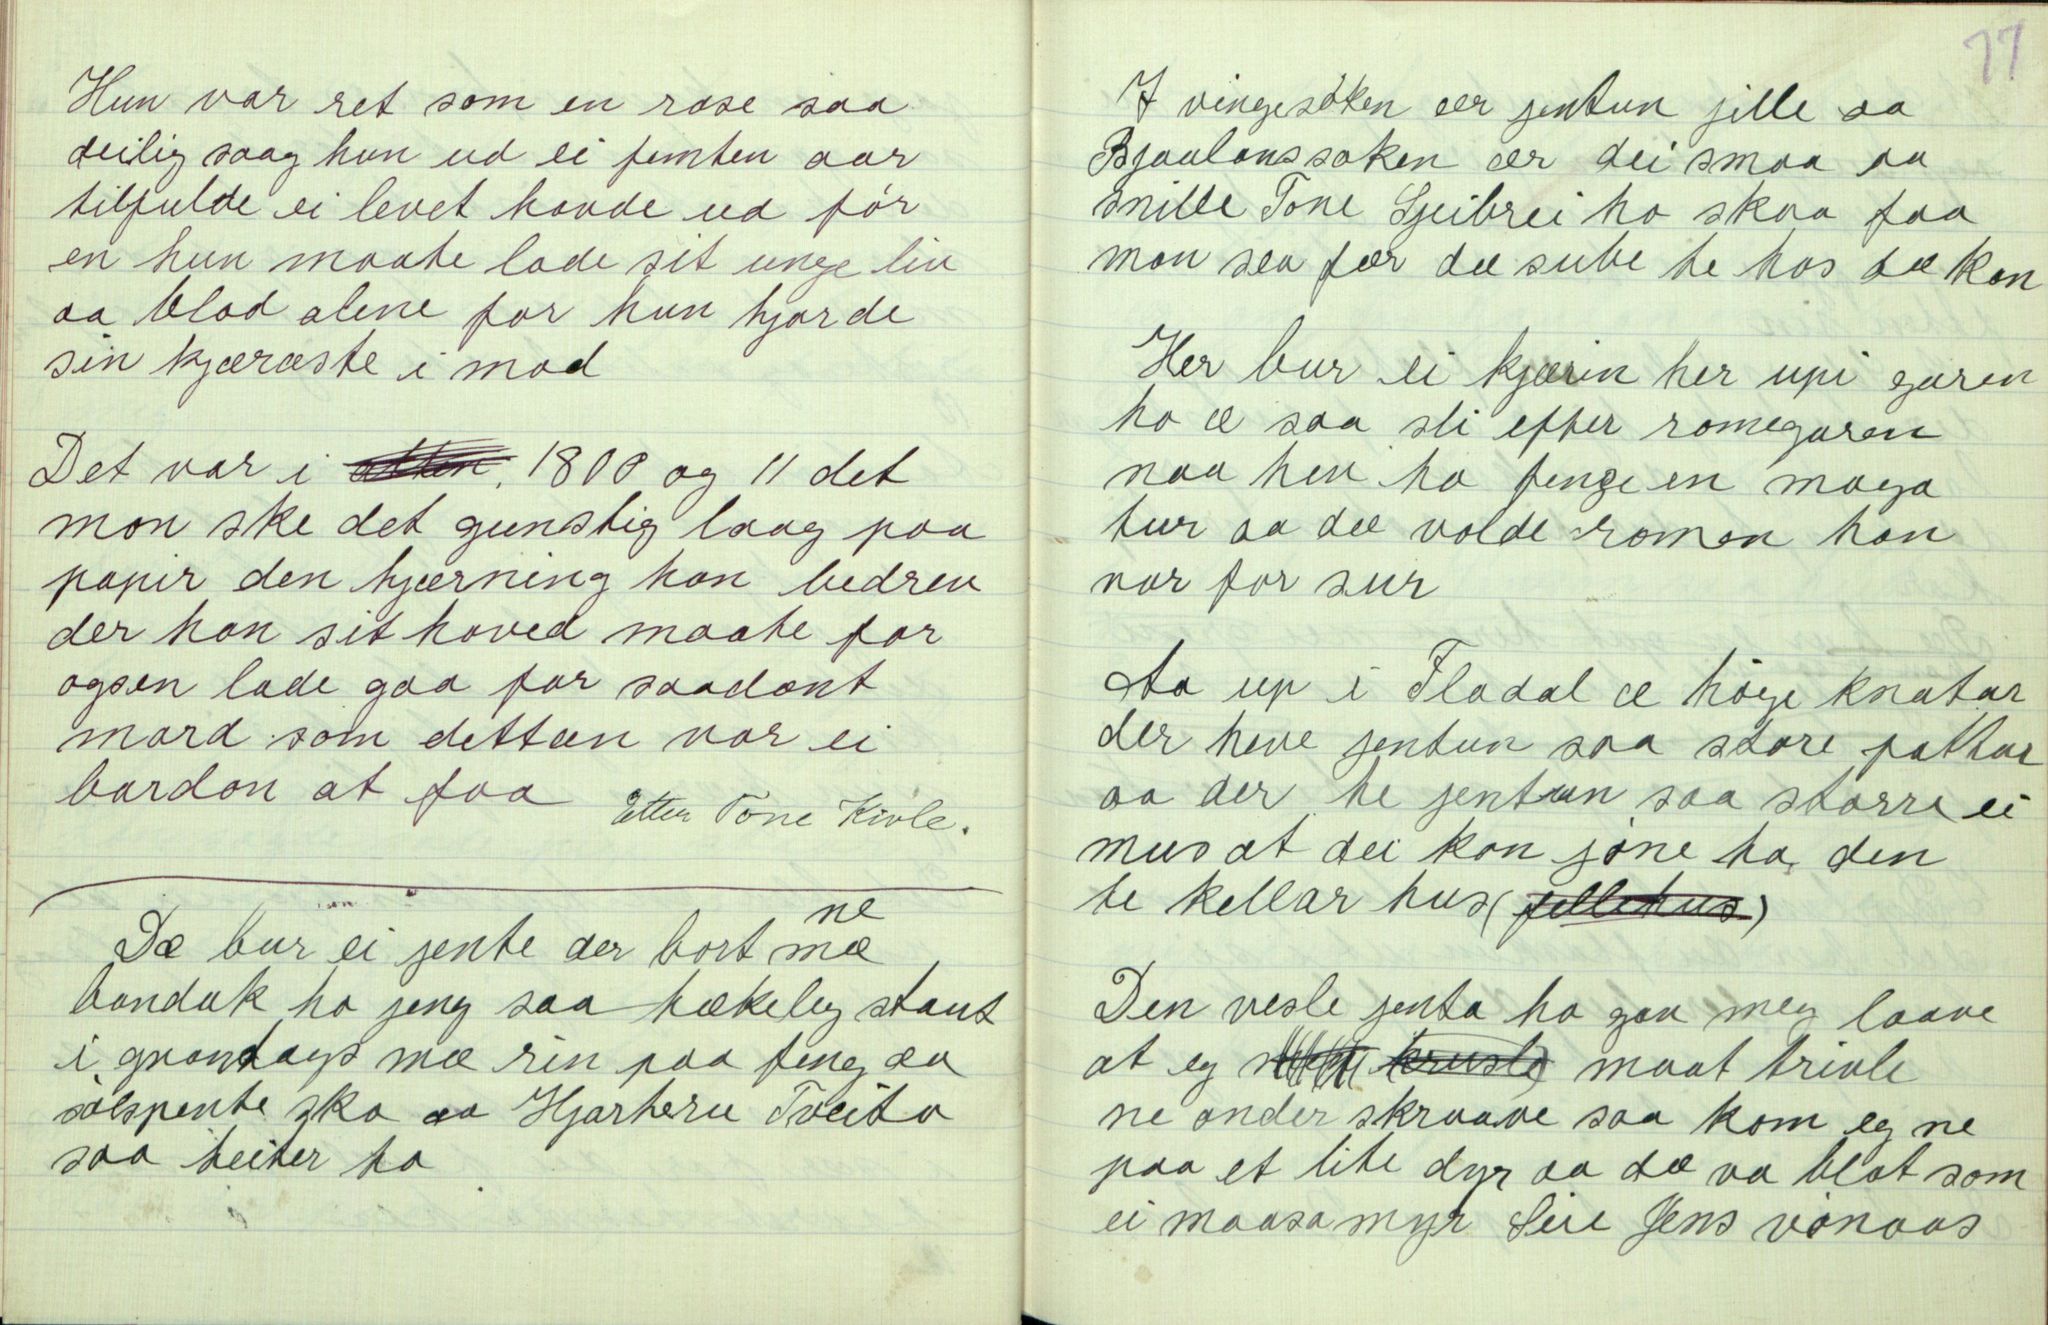 Hun var ret som en rose saa
deilig saag hun ud ei femten aar
tilfulde ei levet havde ud før
en hun maate lade sit unge liv
aa blod alene for hun hjorde
sin kjæræste i mod
Det var i atten, 1800 og 11 det
mon ske det gunstig laag paa
papir den hjærning han bedrev
der han sit hoved maate for
ogsen lade gaa for saadant
mord som dettæn var ei
bardon at faa
Etter Tone Kivle.
ne
Dæ bur ei jente der bort mæ
bandak ho jeng saa hækeleg staut
i gvondags mæ rin paa feng aa
sølspente sko aa Hjarheru Tveito
saa heiter ho
77
I vingesöken ær jentun jille aa
Bjaalanssoken ær dei smaa aa
snille Tone Sjeibrei ho skaa faa
mon sea fær dæ sube he hos dæ kan
Her bur ei kjærin her upi garen
ho æ saa sli efter romegaren
naa hev ho fengeen maga
tur aa dæ volde roman han
var for sur
Aa up i Fladal æ höge knatar
der heve jentun saa store pattar
aa der he jentun saa storre ei
mus at dei kan jöne ha den
te kellar hus (fellehus)
Den vesle jenta ho gav meg laave
at eg krusle maat trivle
ne onder skraave saa kom eg ne
paa et lite dyr aa dæ va blot som
ei maasamyr Leie Jens vönaas